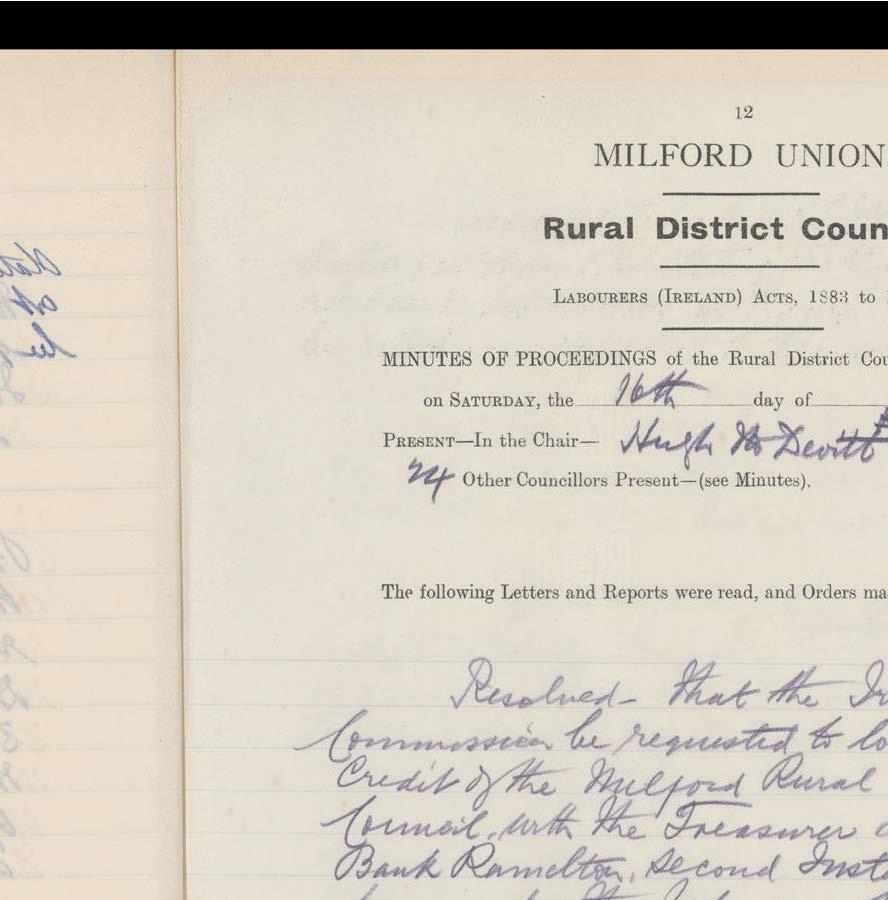 12
MILFORD UNION
Rural District Coun
LABOURERS (IRELAND) ACTS, 1883 to
MINUTES OF PROCEEDINGS of the Rural District Cou
on SATURDAY, the 16th day of
PRESENT—In the Chair— Hugh McDevitt
24 Other Councillors Present—(see Minutes).
The following Letters and Reports were read, and Orders ma
Resolved - That the Ir
Commission be requested to lo
Credit of the Milford Rural
Council, with the Treasurer
Bank Ramelton, Second Insta